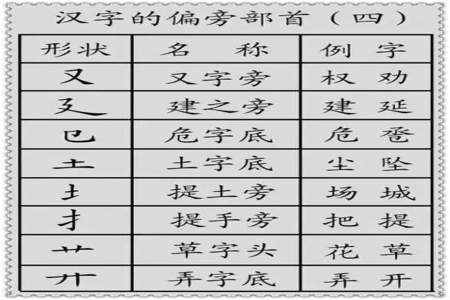 汉字的偏旁部首（四）
形状 名 称 例 字
又 又字旁 权 劝
廴 建之旁 建 延
㔾 危字底 危 卺
土 土字底 尘 坠
土 提土旁 场 城
扌 提手旁 把 提
艹 草字头 花 草
廾 弄字底 弄 开